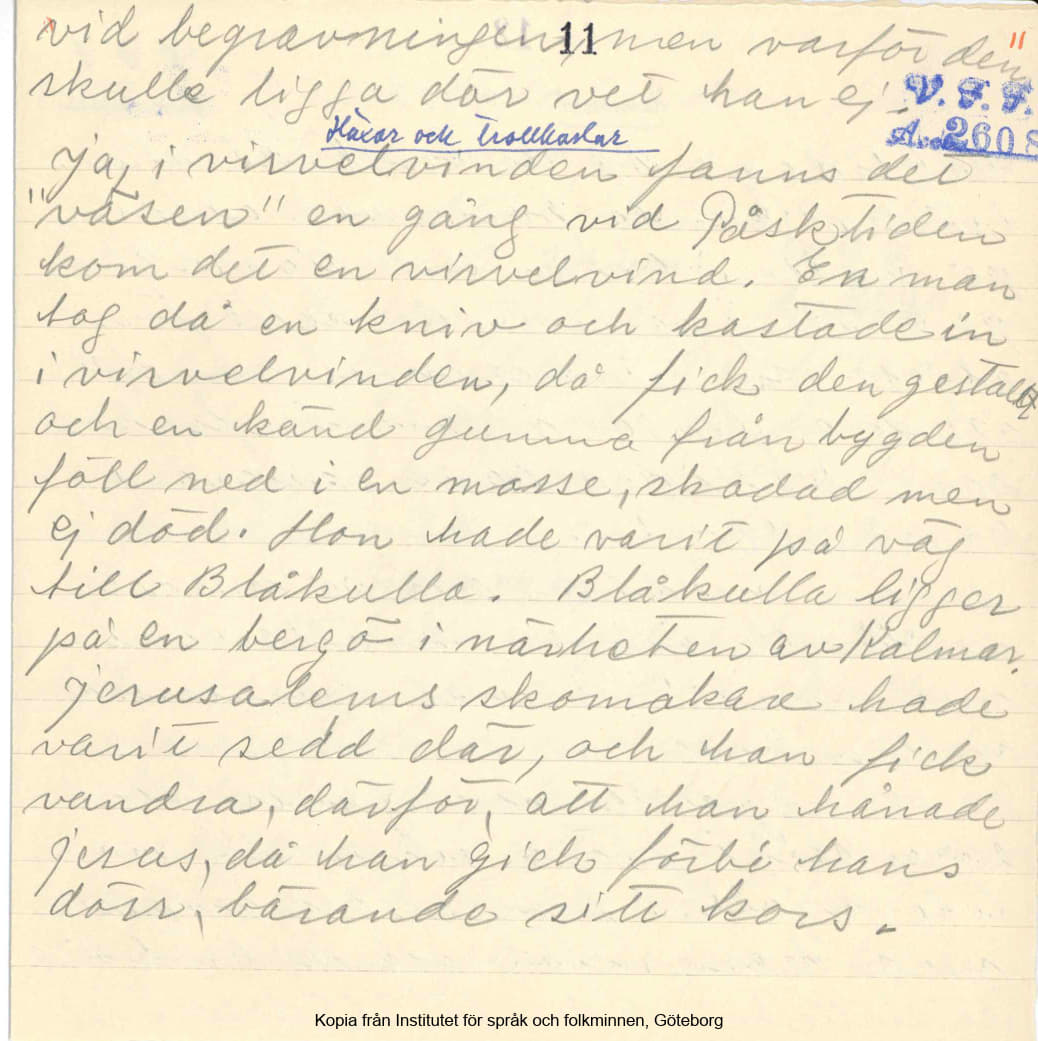 vid begravningen, men varför den
11
"
skulle ligga där vet han ej.
V. F. F.
Acc. 2608
Häxor och trollkarlar
Ja, i virvelvinden fanns det
"väsen" en gång vid Påsktiden
kom det en virvelvind. En man
tog då en kniv och kastade in
i virvelvinden, då fick den gestalt
och en känd gumma från bygden
föll ned i en mosse, skadad men
ej död. Hon hade varit på väg
till Blåkulla. Blåkulla ligger
på en bergö i närheten av Kalmar.
Jerusalems skomakare hade
varit sedd där, och han fick
vandra, därför, att han hånade
Jesus, då han gick förbi hans
dörr, bärande sitt kors.
Kopia från Institutet för språk och folkminnen, Göteborg